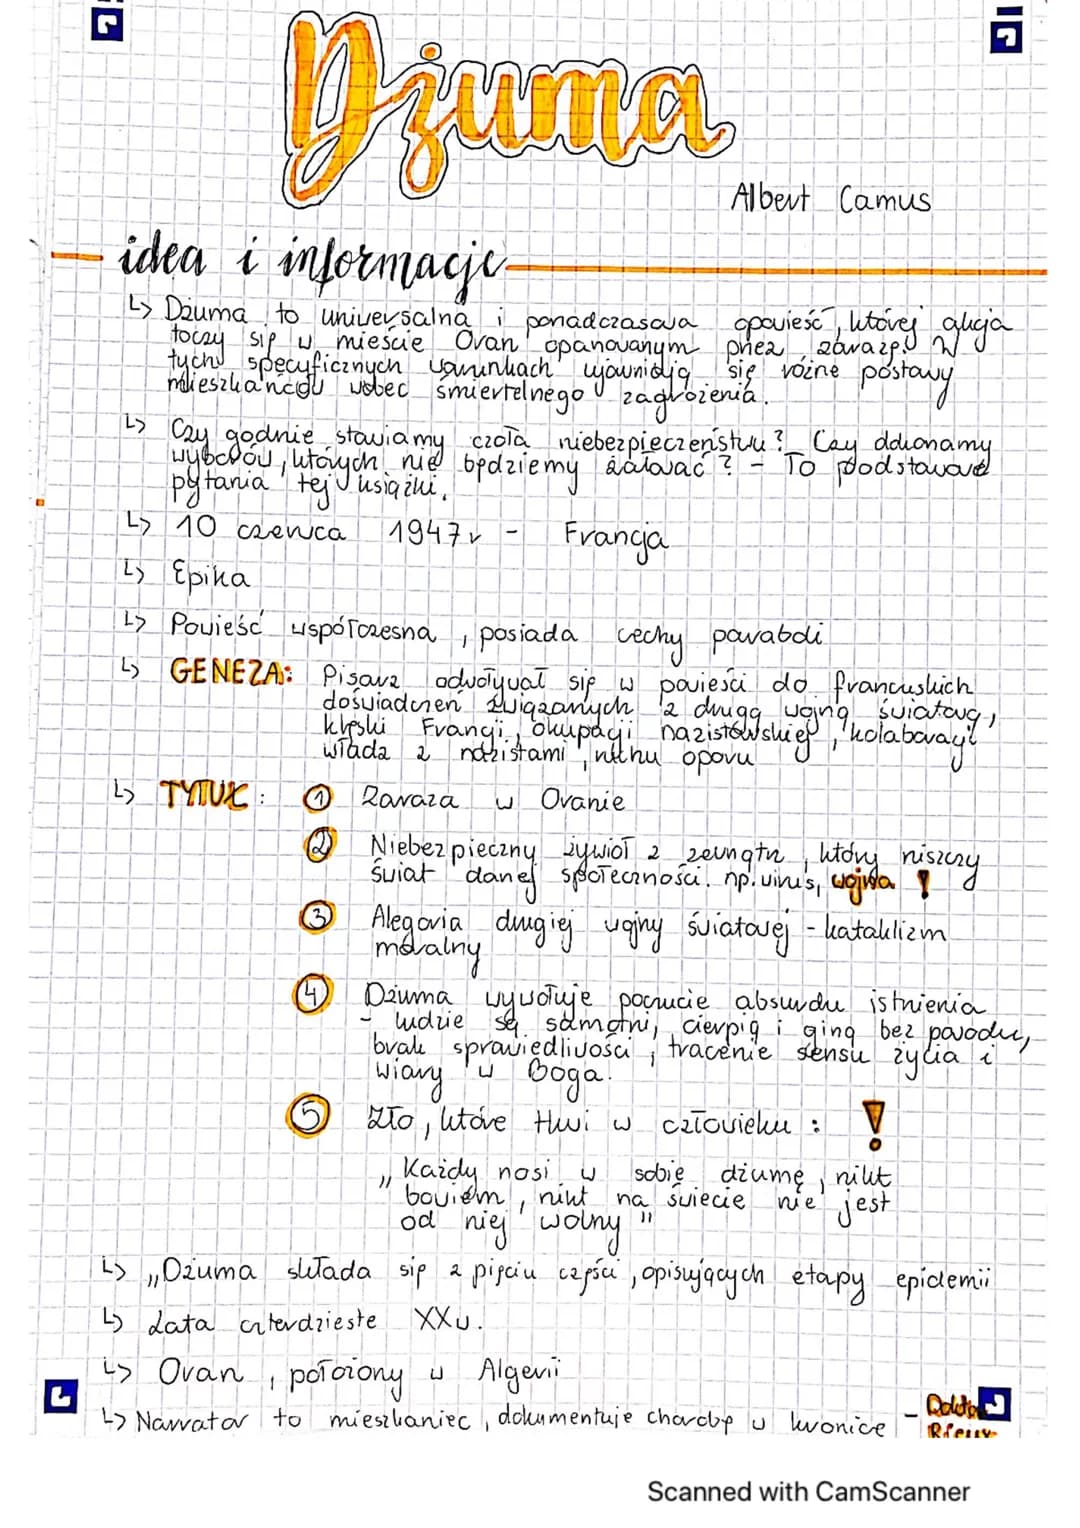 Dżuma
Albert Camus
idea i informacje
↳ Dżuma to uniwersalna i ponadczasowa opowieść, której akcja
toczy się w mieście Oran opanowanym przez zarazę. W
tych specyficznych warunkach ujawniają się różne postawy
mieszkańców wobec śmiertelnego zagrożenia.
↳ Czy godnie stawiamy czoła niebezpieczeństwu? Czy dokonamy
wyborów, których nie będziemy żałować? - To podstawowe
pytania tej książki.
↳ 10 czerwca 1947r - Francja
↳ Epika
↳ Powieść współczesna, posiada cechy paraboli
↳ GENEZA: Pisarz odwoływał się w powieści do francuskich
doświadczeń związanych z drugą wojną światową,
klęski Francji, okupacji nazistowskiej, kolaboracji
władz z nazistami, ruchu oporu
↳ TYTUŁ: ① Zaraza w Oranie
② Niebezpieczny żywioł z zewnątrz, który niszczy
świat danej społeczności. np. wirus, wojna !
③ Alegoria drugiej wojny światowej - kataklizm
moralny
④ Dżuma wywołuje poczucie absurdu istnienia
- ludzie są samotni, cierpią i giną bez powodu,
brak sprawiedliwości, tracenie sensu życia i
wiary w Boga.
⑤ Zło, które tkwi w człowieku: !
„Każdy nosi w sobie dżumę, nikt
bowiem, nikt na świecie nie jest
od niej wolny"
↳ „Dżuma składa się z pięciu części, opisujących etapy epidemii
↳ Lata czterdzieste XXw.
↳ Oran, położony w Algerii
↳ Narrator to mieszkaniec, dokumentuje chorobę w kronice - Doktor
Rieux
Scanned with CamScanner